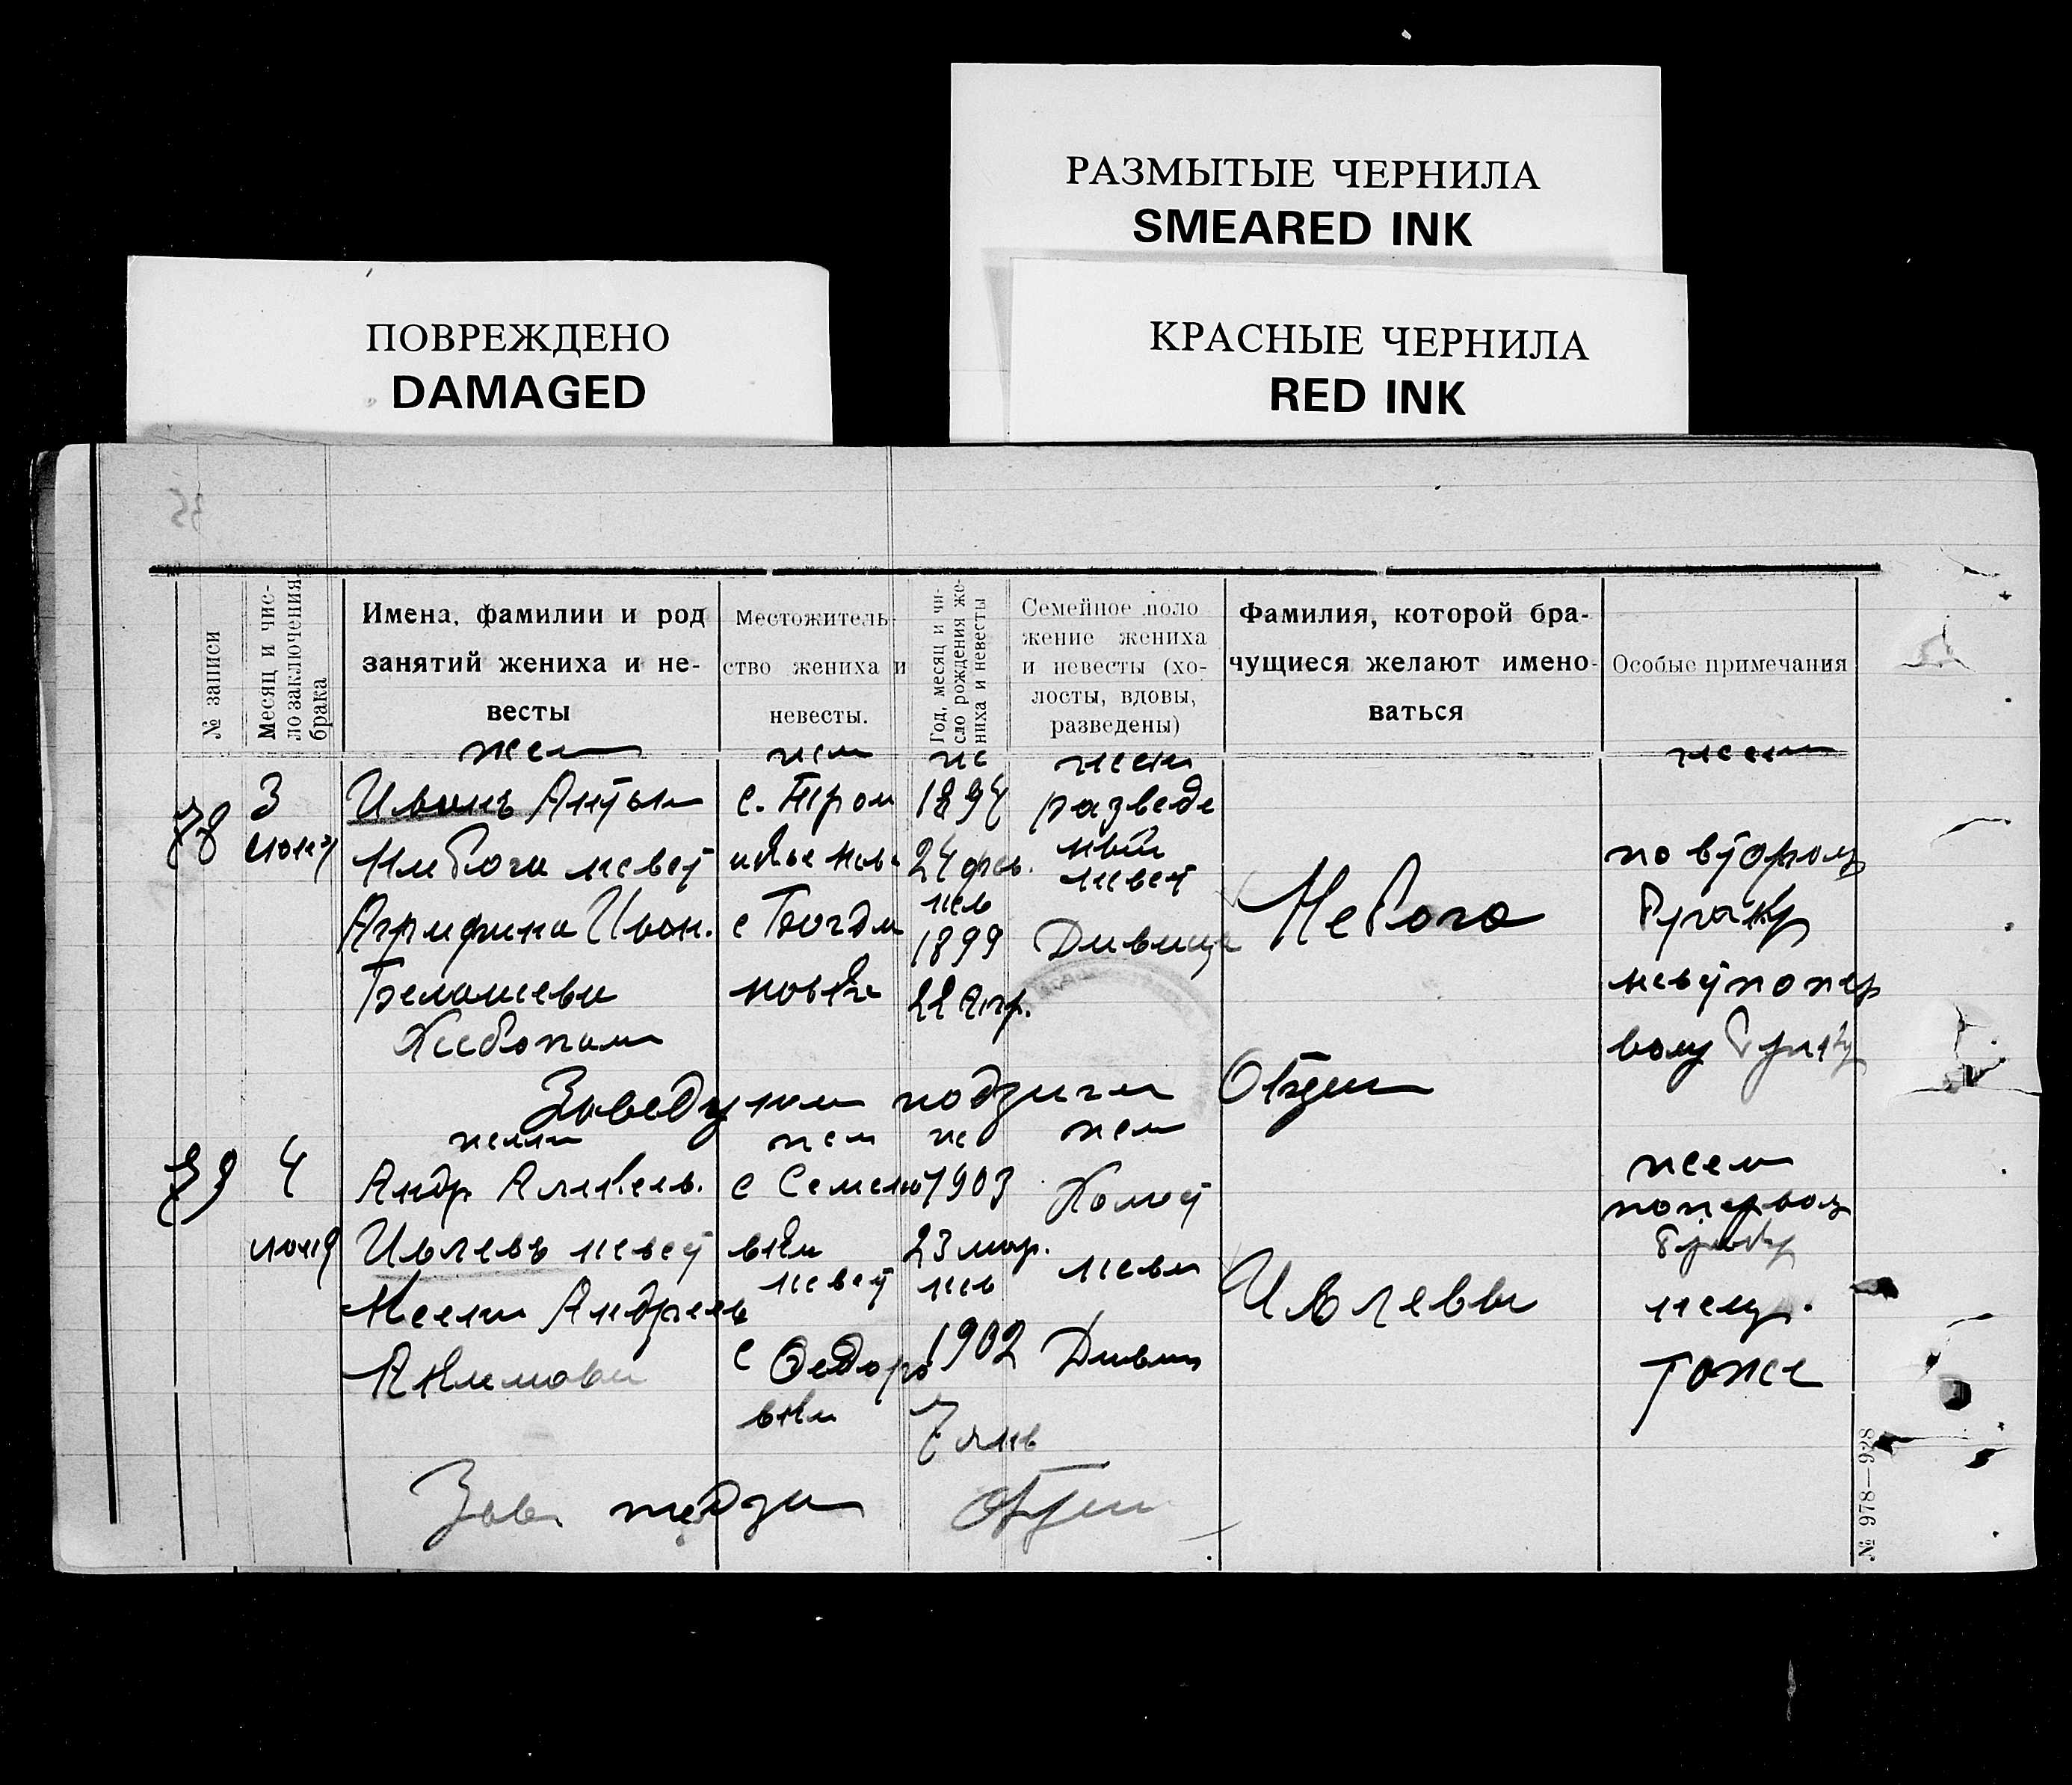 РАЗМЫТЫЕ ЧЕРНИЛА
SMEARED INK
ПОВРЕЖДЕНО
DAMAGED
КРАСНЫЕ ЧЕРНИЛА
RED INK
35
№ записи
Месяц и чис-
ло заключения
брака
Имена, фамилии и род
занятий жениха и не-
весты
Местожитель-
ство жениха и
невесты.
Год, месяц и чи-
сло рождения же-
ниха и невесты
Семейное поло
жение жениха
и невесты (хо-
лосты, вдовы,
разведены)
Фамилия, которой бра-
чущиеся желают имено-
ваться
Особые примечания
78
3
июня
Иванъ Антон
Небога невест
Агрифина Иван.
Белашева
Хлебопаш
1894
24 фев.
нев
1899
22 Апр.
разведе
ный
невест
Девица
Небога
по втором
браку
невест по пер
вому браку
Заведующ подзаги
79
4
июня
Андр Алексеев.
Ивлевъ невест
Андреев
Акимова
с Семено
вки
невест
с Федоро
вки
1903
23 мар.
нев
1902
7 янв
Холост
нев
Девиц
Ивлевы
жен
по первом
браку
нев.
тоже
Зав. подзаг
№ 978—928